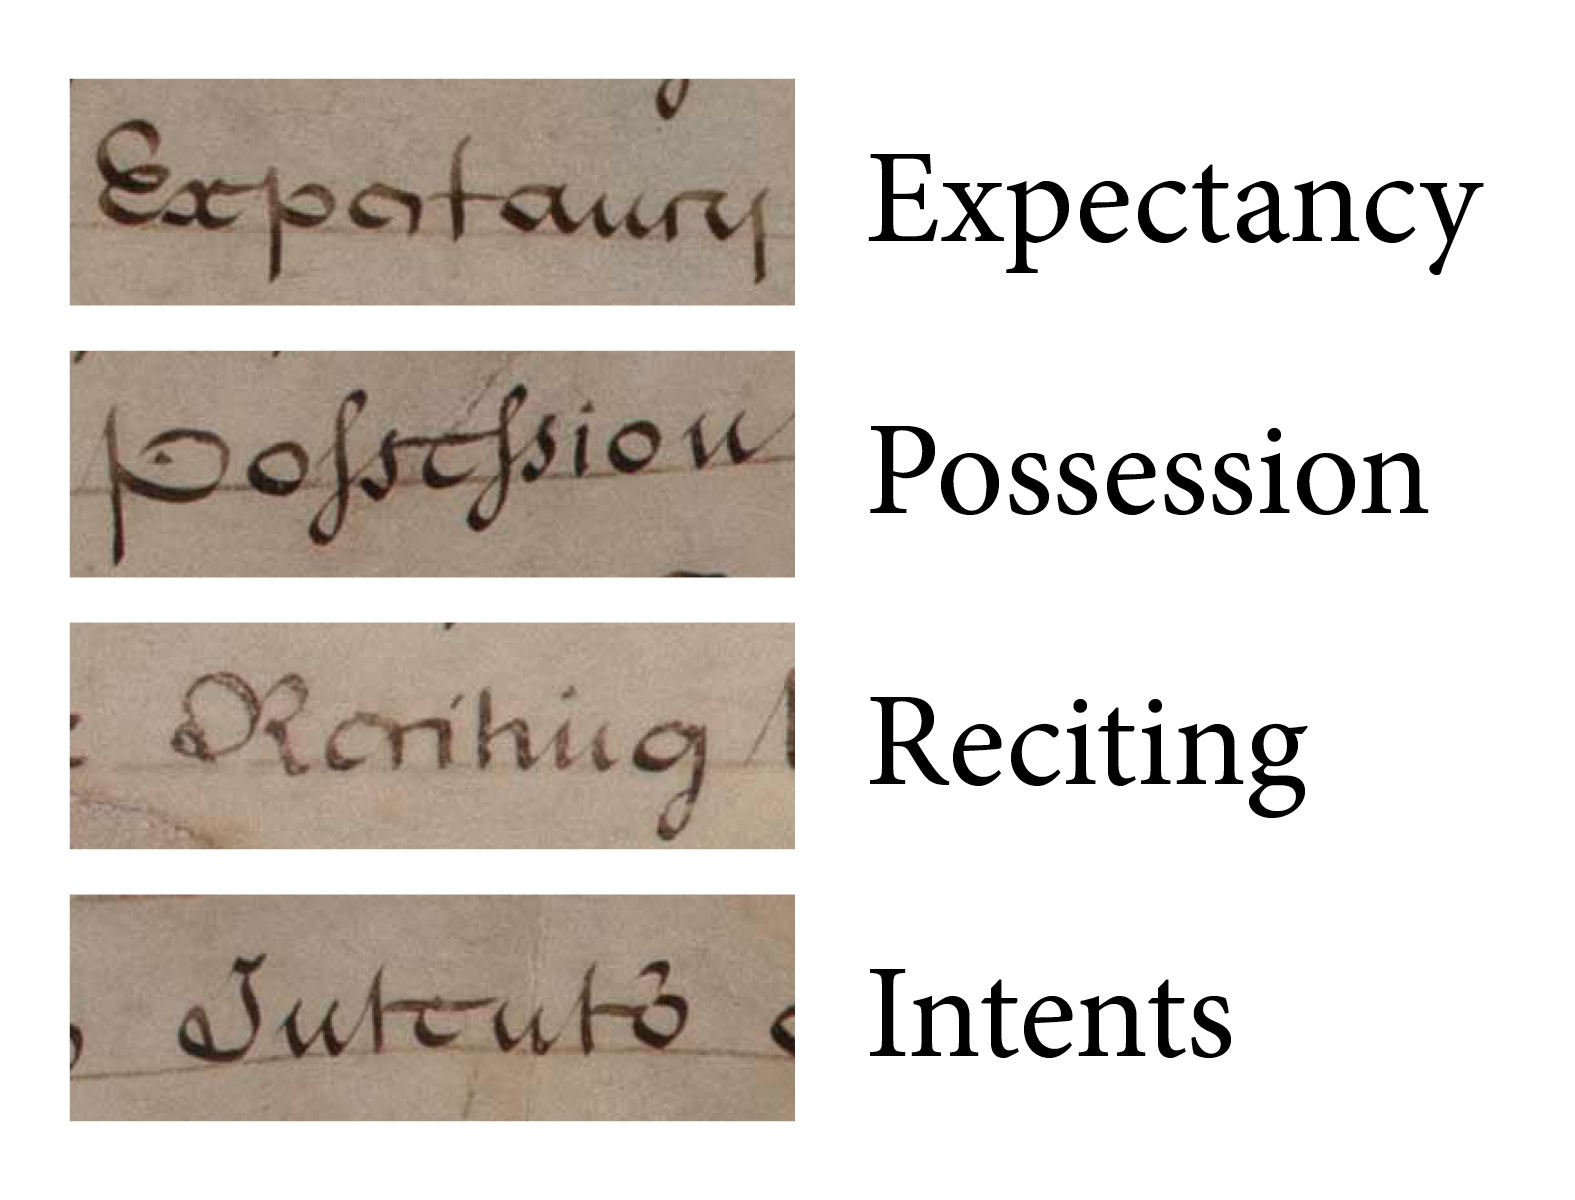 Expectancy Expectancy
Possession Possession
Reciting Reciting
Intents Intents